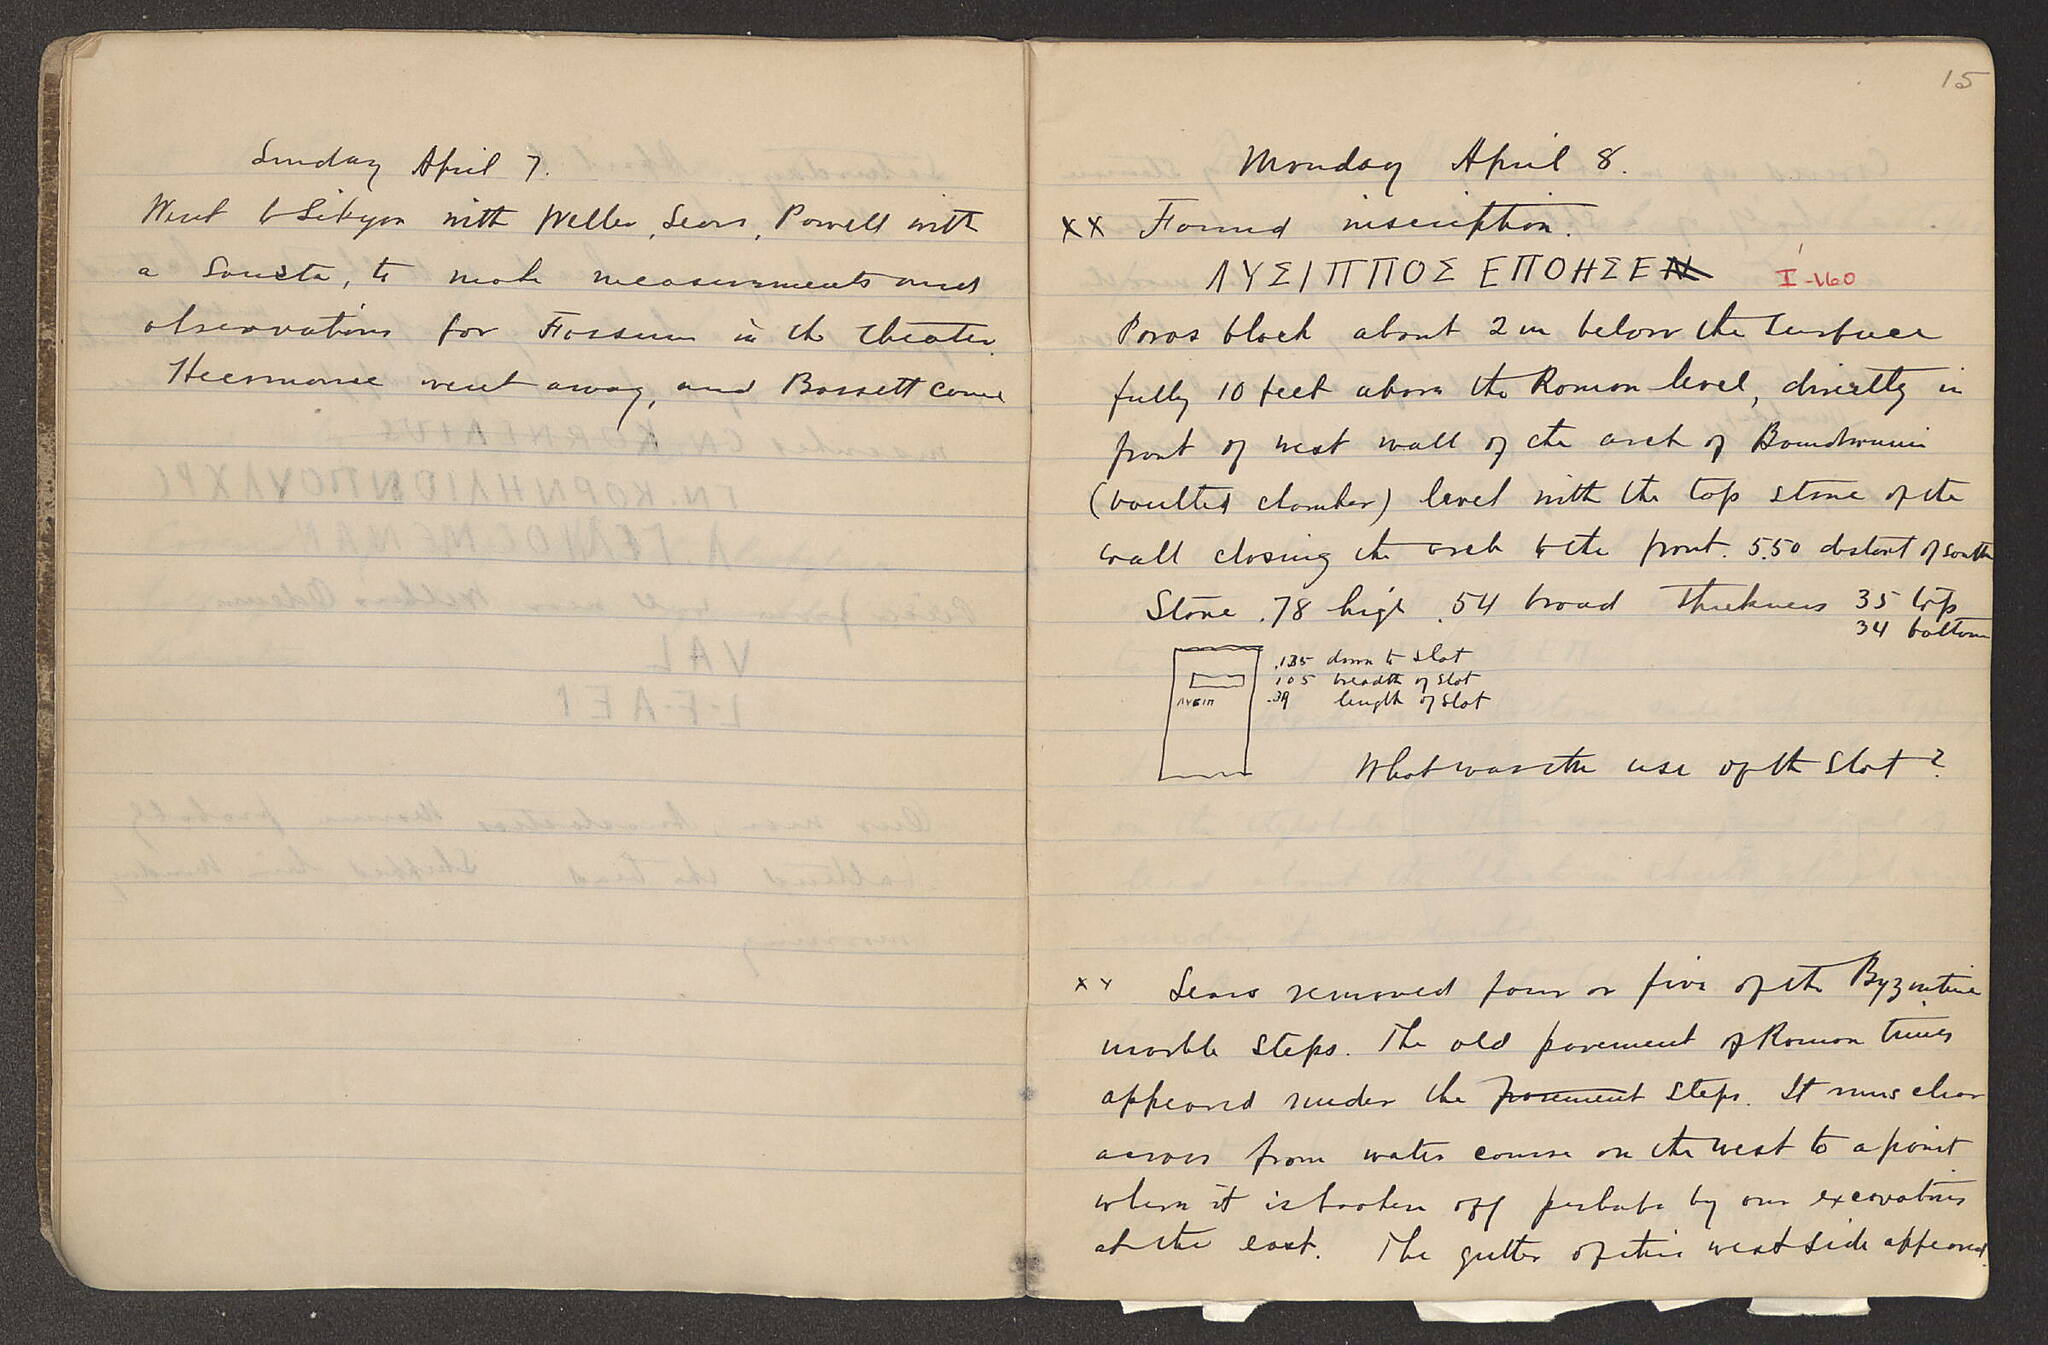 Sunday April 7.
Went to Sikyon with Weller, Sears, Powell with
a Sousta, to make measurements and
observations for Fossum in the theater.
Heermance went away, and Bassett came
15
Monday April 8.
XX Found inscription.
ΛΥΣΙΠΠΟΣ ΕΠΟΗΣΕΝ
I-160
Poros block about 2 m below the surface
fully 10 feet above the Roman level, directly in
front of west wall of the arch of
(vaulted chamber) level with the top stone of the
wall closing the arch to the front. 5.50 distant of south
Stone .78 high .54 broad thickness 35 top
34 bottom
.135 down to slot
105 breadth of slot
.39 length of slot
ΛΥΣΙΠ
What was the use of the slot?
XX Sears removed four or five of the Byzantine
marble steps. The old pavement of Roman times
appeared under the pavement steps. It runs clear
across from water course on the west to a point
where it is broken off perhaps by our excavations
at the east. The gutter of this west side appeared.